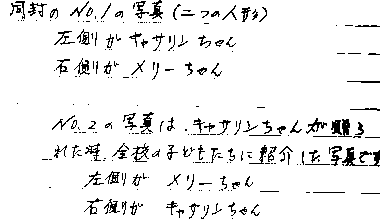 同封の No.1の写真(二つの人形)
左側が キャサリンちゃん
右側が メリーちゃん
No.2の写真は、キャサリンちゃんが贈ら
れた時、全校の子どもたちに紹介した写真です
左側が メリーちゃん
右側が キャサリンちゃん